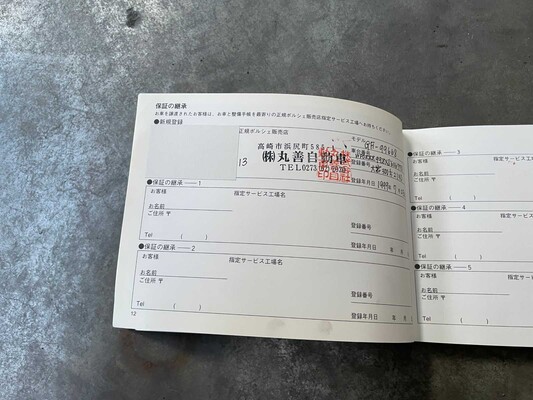 保証の継承
お車を譲渡されたお客様は、お車と整備手帳を最寄りの正規ポルシェ販売店指定サービス工場へお持ちください。
●新規登録
正規ポルシェ販売店
高崎市浜尻町58
㈱丸善自動車
TEL0273
モデル
車台番号
登録番号
登録年月日
13
●保証の継承——1
お客様
指定サービス工場名
お名前
ご住所 〒
登録番号
Tel ( )
登録年月日 年 月
●保証の継承——2
お客様
指定サービス工場名
お名前
ご住所 〒
登録番号
Tel ( )
登録年月日 年 月
12
●保証の継承——3
お客様
お名前
ご住所 〒
Tel ( )
●保証の継承——4
お客様
指定サー
お名前
ご住所 〒
Tel ( )
●保証の継承——5
お客様
指定サービス
お名前
ご住所 〒
Tel ( )